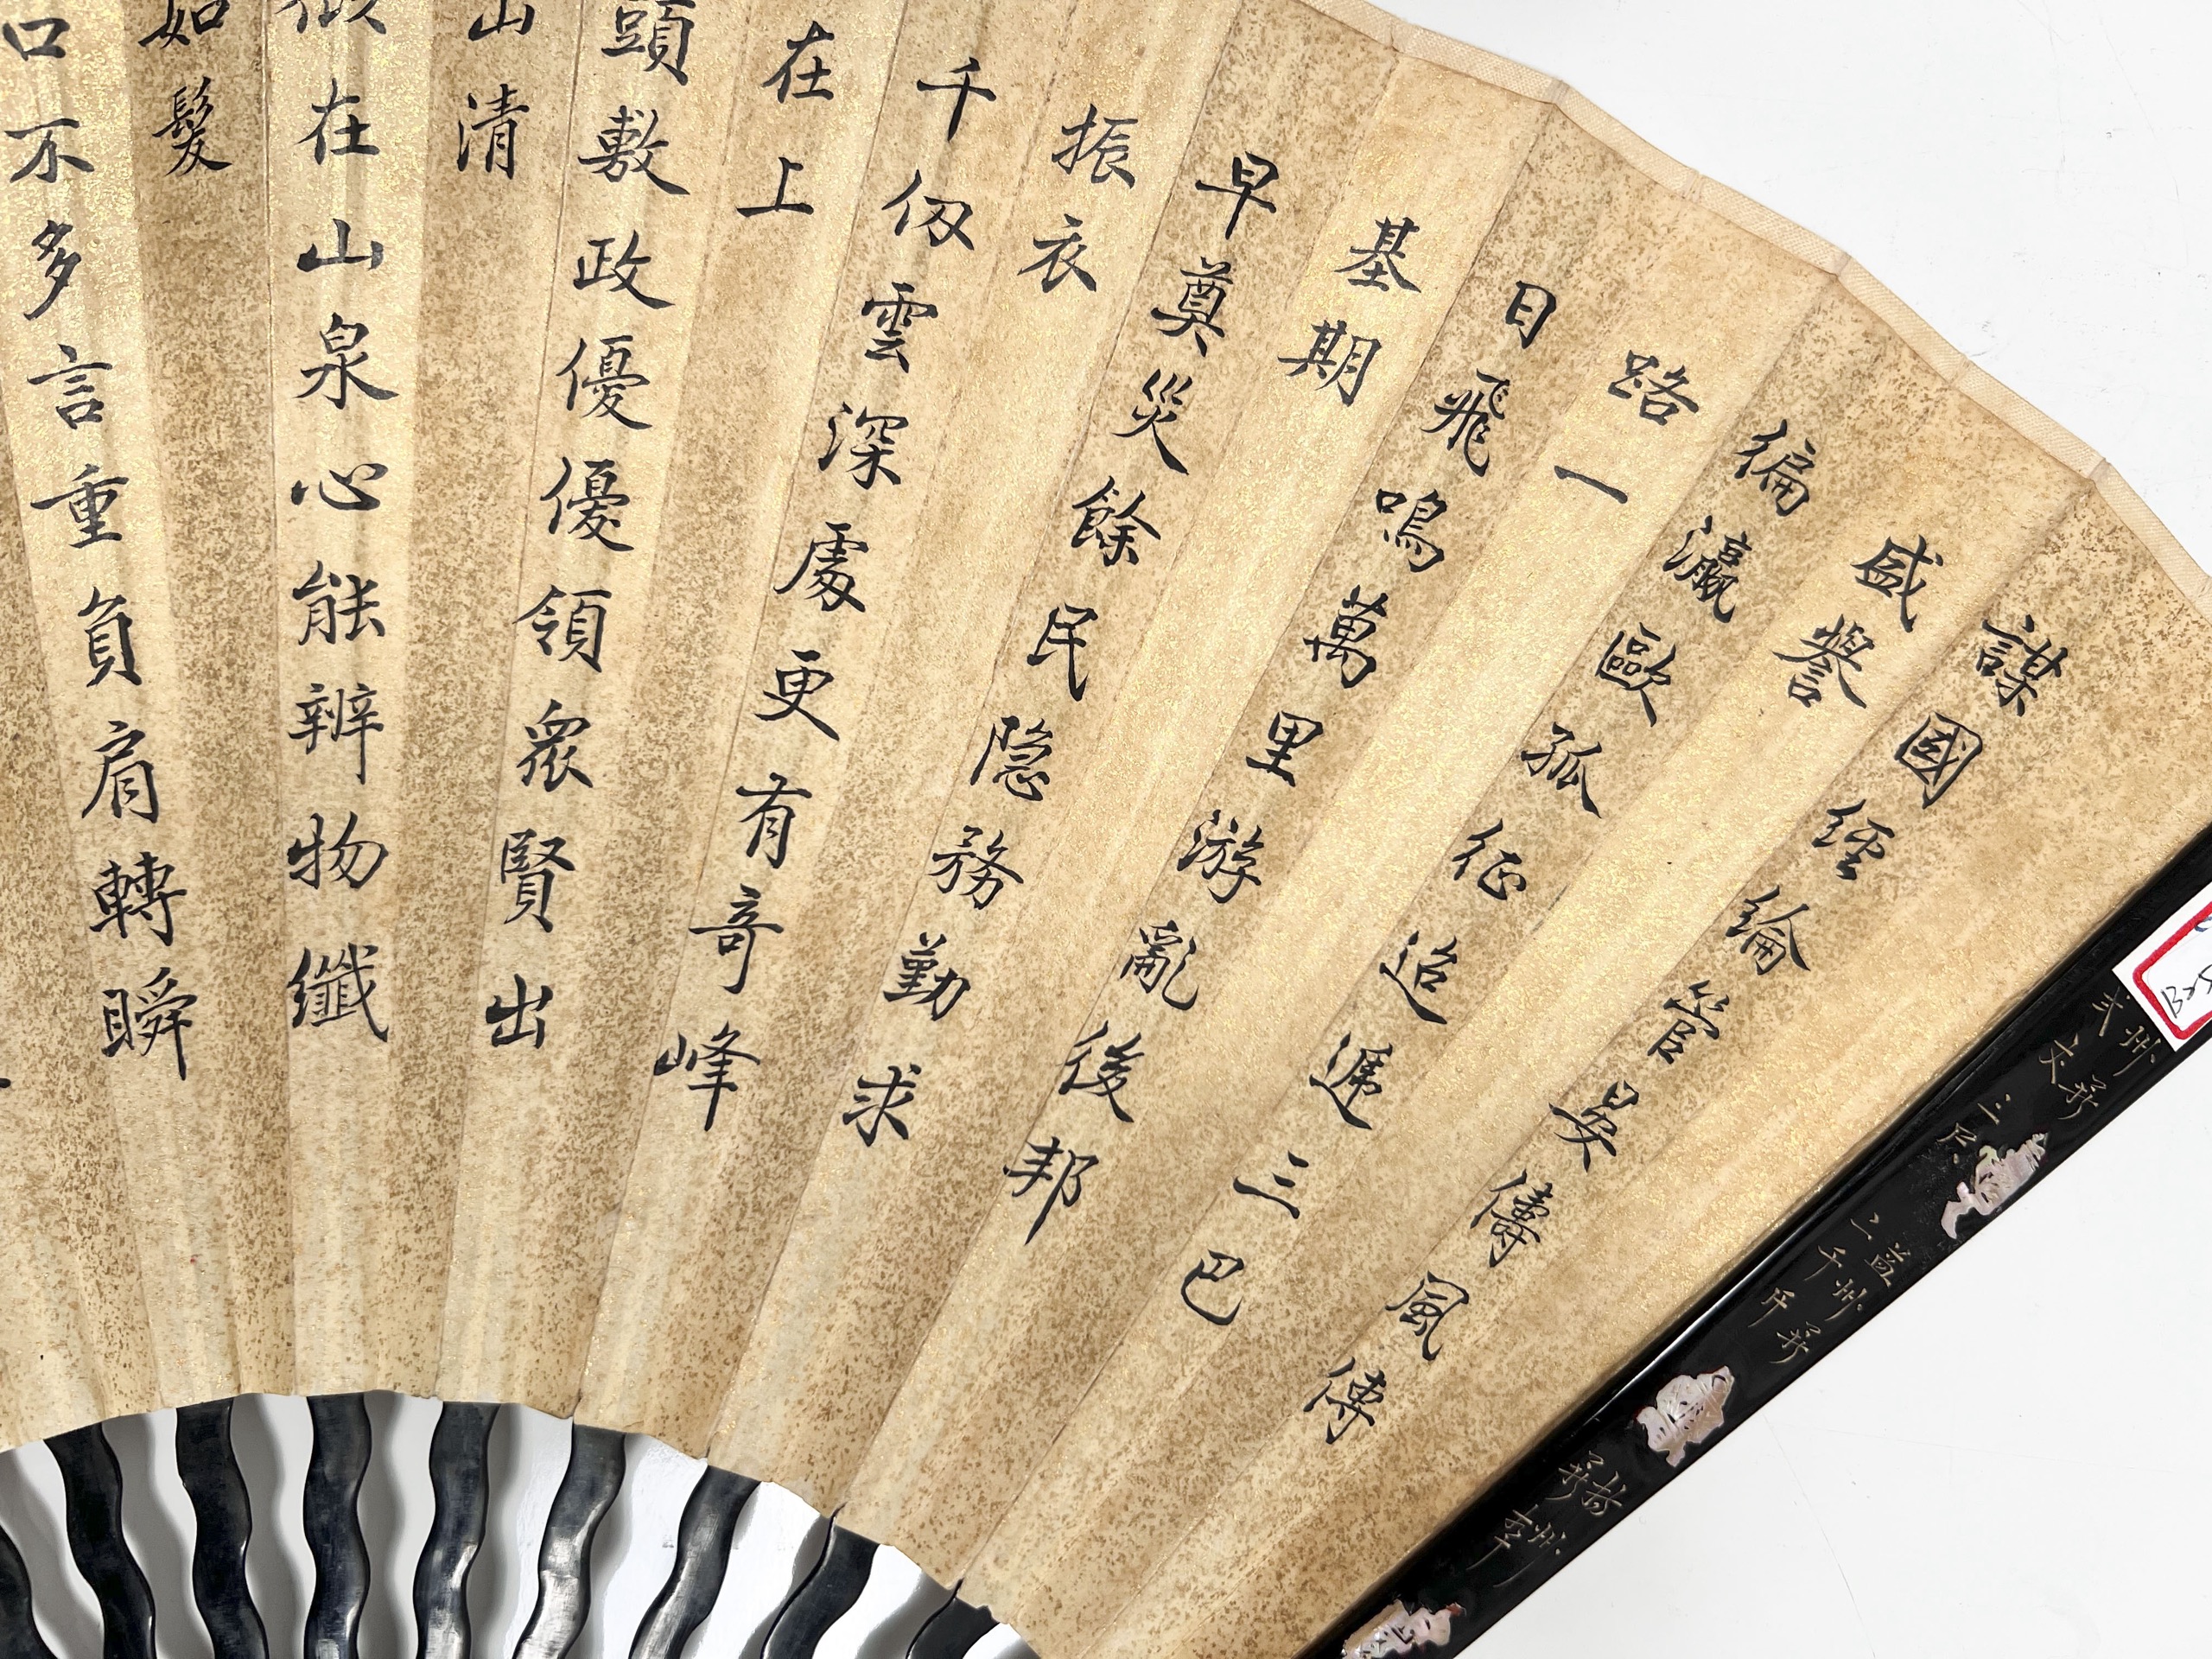 謀國經綸管晏儔風傳
盛譽
徧瀛歐孤征迢遞三巴
路一
日飛鳴萬里游亂後邦
基期
早奠災餘民隐務勤求
振衣
千仞雲深處更有奇峰
在上
頭敷政優優領眾賢出
山清
似在山泉心能辨物纖
如髮
口不多言重負肩轉瞬